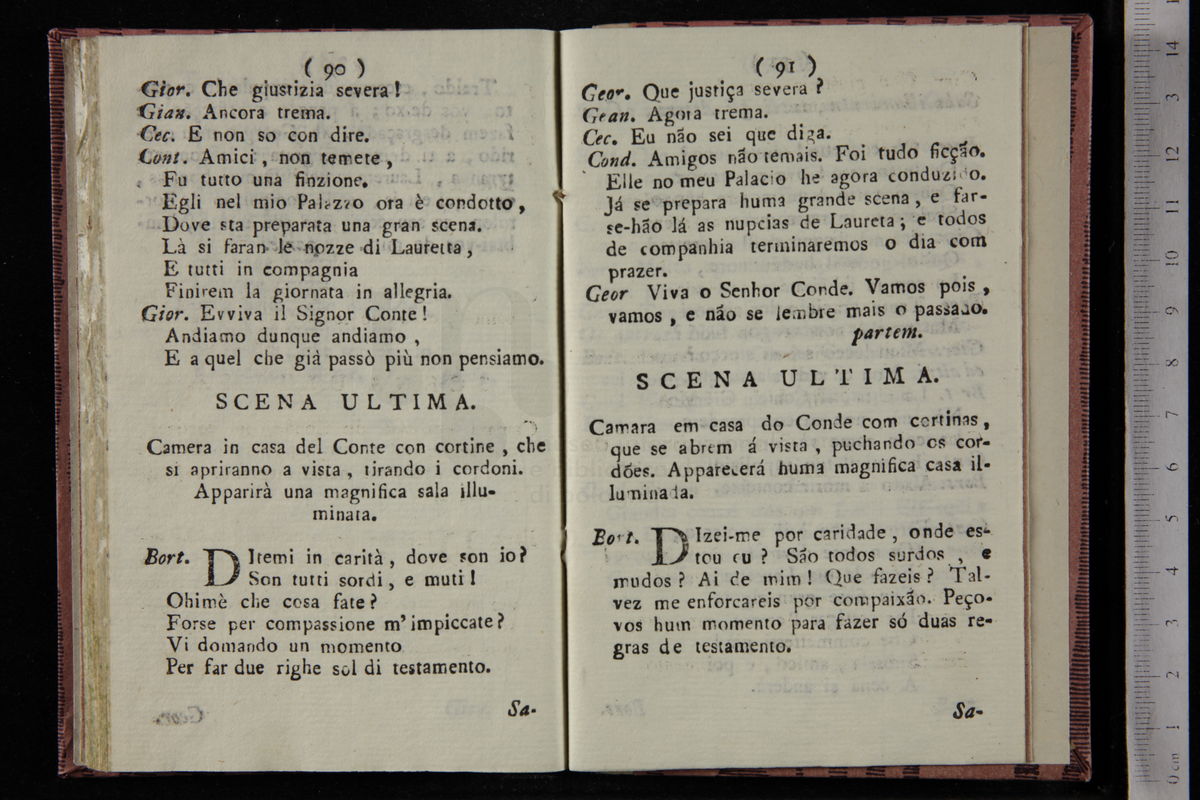 ( 90 )
Gior. Che giustizia severa!
Gian. Ancora trema.
Cec. E non so con dire.
Cont. Amici, non temete,
Fu tutto una finzione.
Egli nel mio Palazzo ora è condotto,
Dove sta preparata una gran scena.
Là si faran le nozze di Lauretta,
E tutti in compagnia
Finirem la giornata in allegria.
Gior. Evviva il Signor Conte!
Andiamo dunque andiamo,
E a quel che già passò più non pensiamo.
SCENA ULTIMA.
Camera in casa del Conte con cortine, che
si apriranno a vista, tirando i cordoni.
Apparirà una magnifica sala illu-
minata.
Bort. DItemi in carità, dove son io?
Son tutti sordi, e muti!
Ohimè che cosa fate?
Forse per compassione m'impiccate?
Vi domando un momento
Per far due righe sol di testamento.
Sa-
( 91 )
Geor. Que justiça severa?
Gean. Agora trema.
Cec. Eu não sei que diga.
Cond. Amigos não temais. Foi tudo ficção.
Elle no meu Palacio he agora conduzido.
Já se prepara huma grande scena, e far-
se-hão lá as nupcias de Laureta; e todos
de companhia terminaremos o dia com
prazer.
Geor Viva o Senhor Conde. Vamos pois,
vamos, e não se lembre mais o passado.
partem.
SCENA ULTIMA.
Camara em casa do Conde com cortinas,
que se abrem á vista, puchando os cor-
dões. Apparecerá huma magnifica casa il-
luminada.
Bort. DIzei-me por caridade, onde es-
tou eu? São todos surdos, e
mudos? Ai de mim! Que fazeis? Tal-
vez me enforcareis por compaixão. Peço-
vos hum momento para fazer só duas re-
gras de testamento.
Sa-
0 cm 1 2 3 4 5 6 7 8 9 10 11 12 3 14